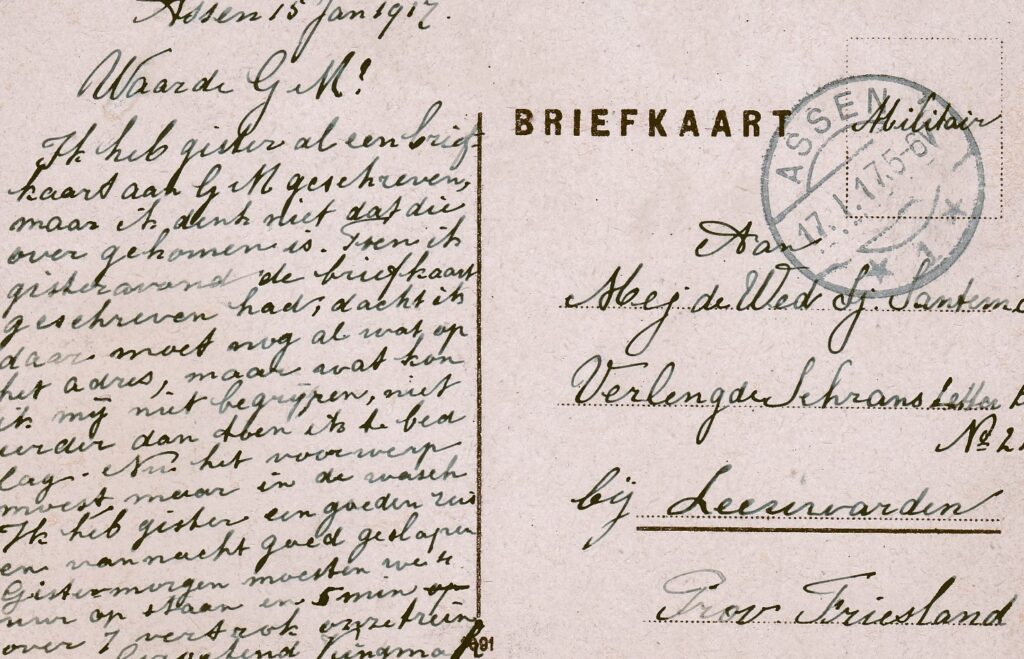 Assen 15 Jan 1917.
Waarde G M!
Ik heb gister al een brief-
kaart aan G M geschreven,
maar ik denk niet dat die
over gekomen is. Toen ik
gisteravond de briefkaart
geschreven had, dacht ik
daar moet nog al wat op
het adres, maar wat kon
ik mij niet begrijpen, niet
eerder dan toen ik te bed
lag. Nu het voorwerp
moest maar in de wasch
Ik heb gister een goeden reis
en vannacht goed geslapen
Gistermorgen moesten we 4
uur op staan en 5 min op
over 7 vertrok onze trein
BRIEFKAART
Militair
ASSEN 1
17.1.17.5-6V
1
Aan
Mej de Wed Sj. Santema
Verlengde Schrans Letter
No 2
bij Leeuwarden
Prov Friesland